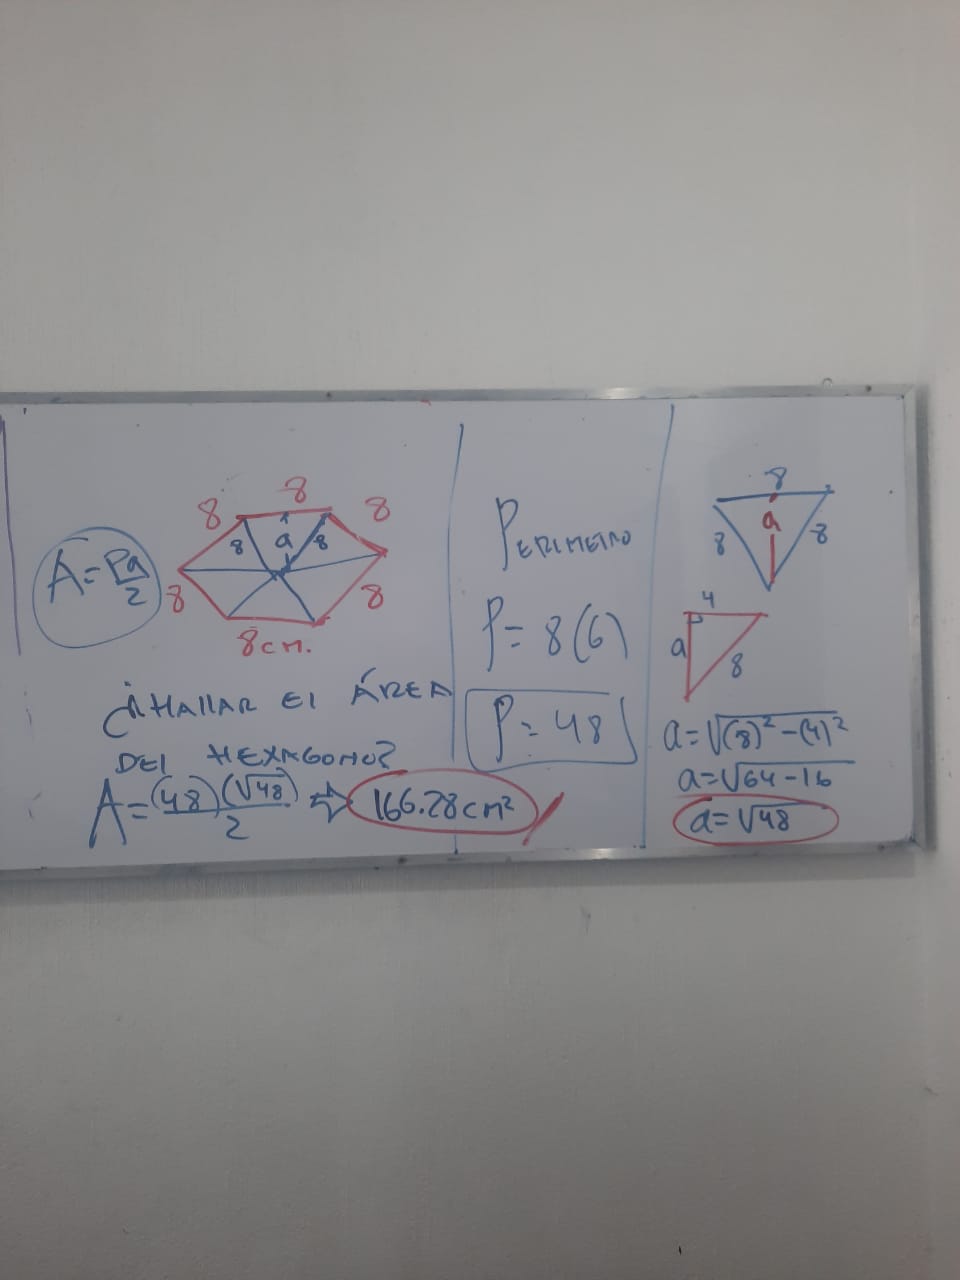 A = Pa/2
8
8
8
8
a
8
8
8
8 cm.
¿HALLAR EL ÁREA
DEL HEXAGONO?
A = (48)(√48)/2 ⇒ 166.28 cm²
PERIMETRO
P = 8(6)
P = 48
8
8
a
8
4
a
8
a = √(8)² - (4)²
a = √64 - 16
a = √48